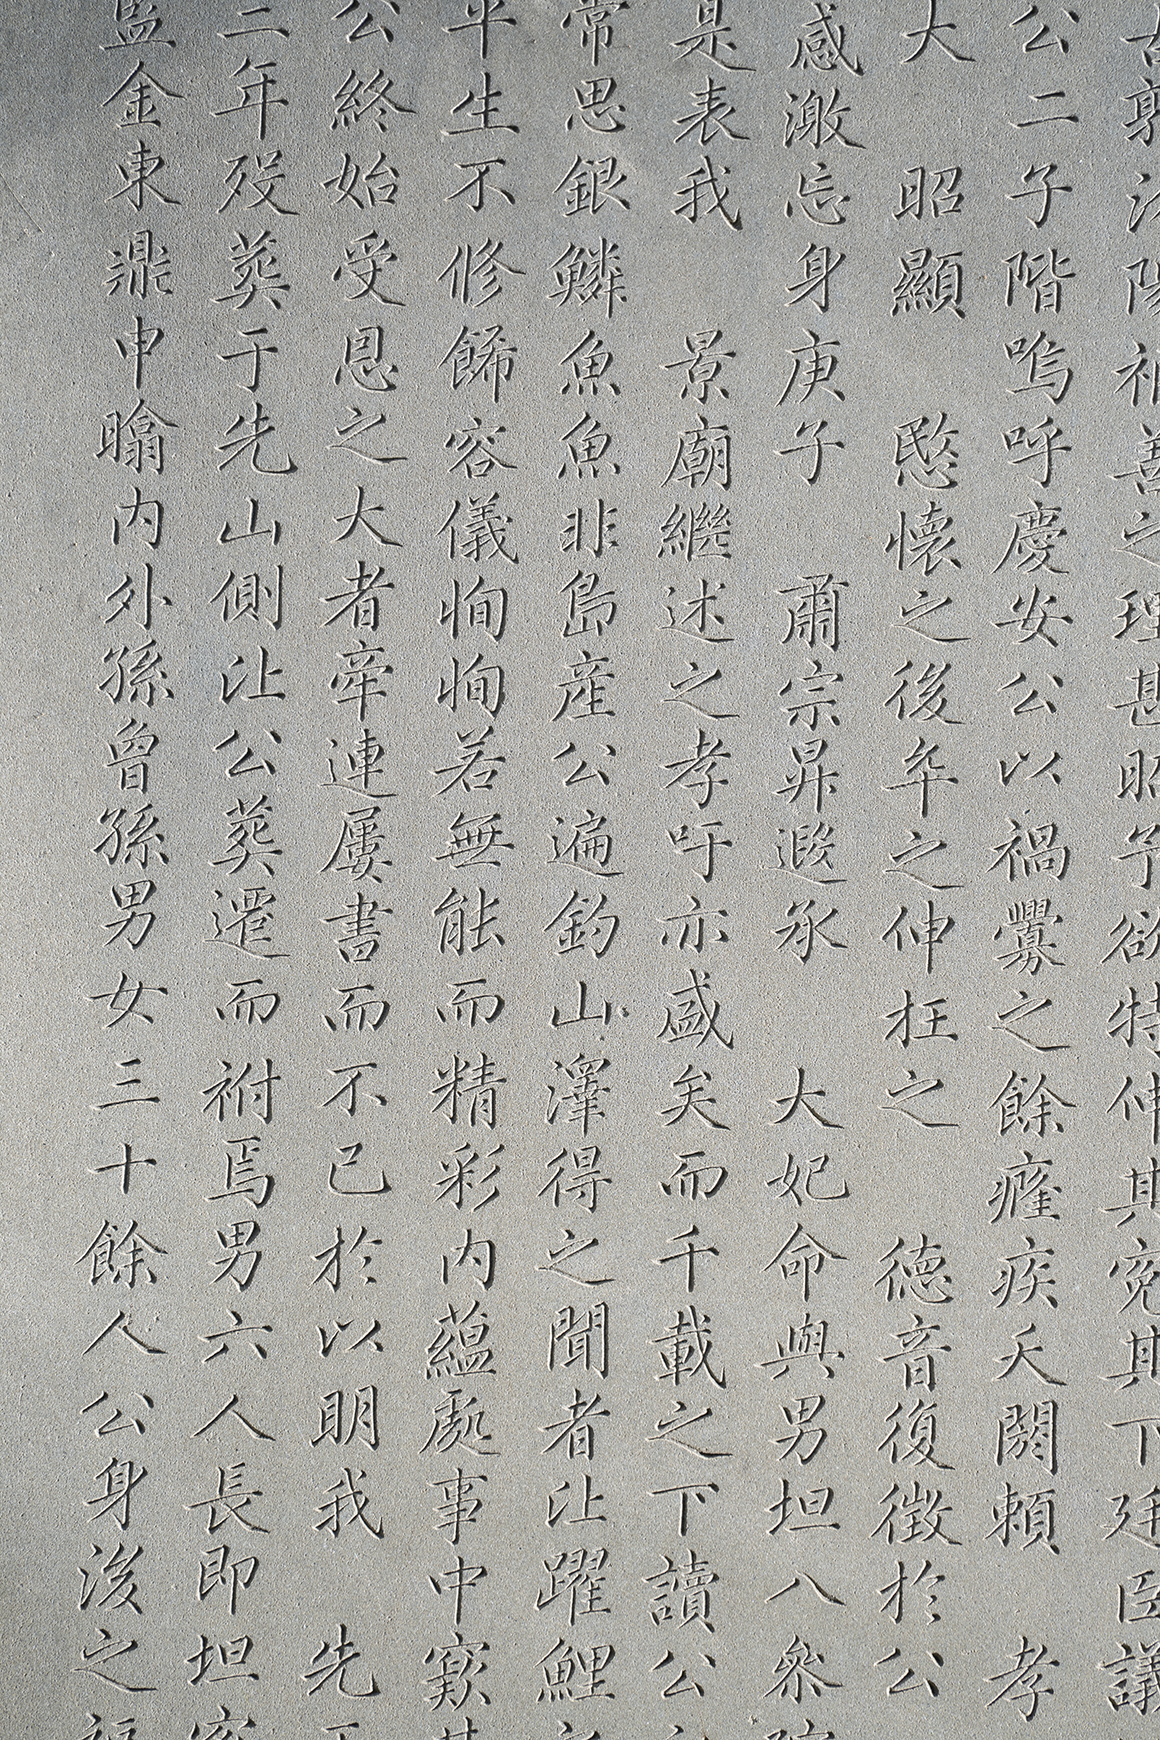 公二子階嗚呼慶安公以禍釁之餘癃疾夭閼賴 孝
大 昭顯 愍懷之後卒之伸枉之 德音復徵於公
感激忘身庚子 肅宗昇遐承 大妃命與男坦八參
是表我 景廟繼述之孝吁亦盛矣而千載之下讀公
常思銀鱗魚魚非島産公遍釣山澤得之聞者沚躍鯉
平生不修餙容儀恂恂若無能而精彩內蘊處事中窾
公終始受恩之大者牽連屢書而不已於以明我 先
二年歿葬于先山側沚公葬遷而祔焉男六人長即坦
監金東鼎申瞈內外孫曾孫男女三十餘人公身後之